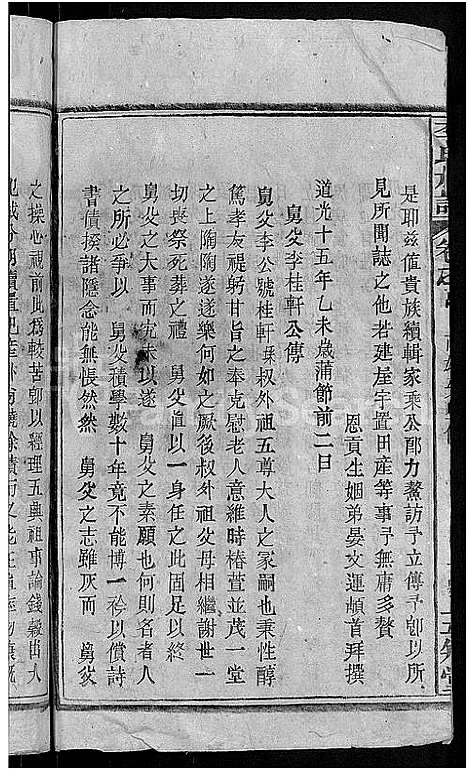 是耶茲值貴族續輯家乘公郎力鰲訪予立傳予卽以所
見所聞誌之他若建屋宇置田產等事予無庸多贅
恩貢生姻弟晏文運頔首拜撰
道光十五年乙未歲蒲節前二日
舅父李桂軒公傳
舅父李公號桂軒琛叔外祖五尊大人之冢嗣也秉性醇
篤孝友禔躬甘旨之奉克慰老人意維時椿萱並茂一堂
之上陶陶遂遂樂何如之厥後叔外祖父母相繼謝世一
切喪祭死葬之禮 舅父以一身任之此固足以終
舅父之大事而究未以遂 舅父之素願也何則各者人
之所必爭以 舅父積學數十年竟不能博一衿以償詩
書債揆諸隱念能無悵然然 舅父之志雖灰而 舅父
之操心視前此爲較苦卽以經理五典祖事論錢穀出入